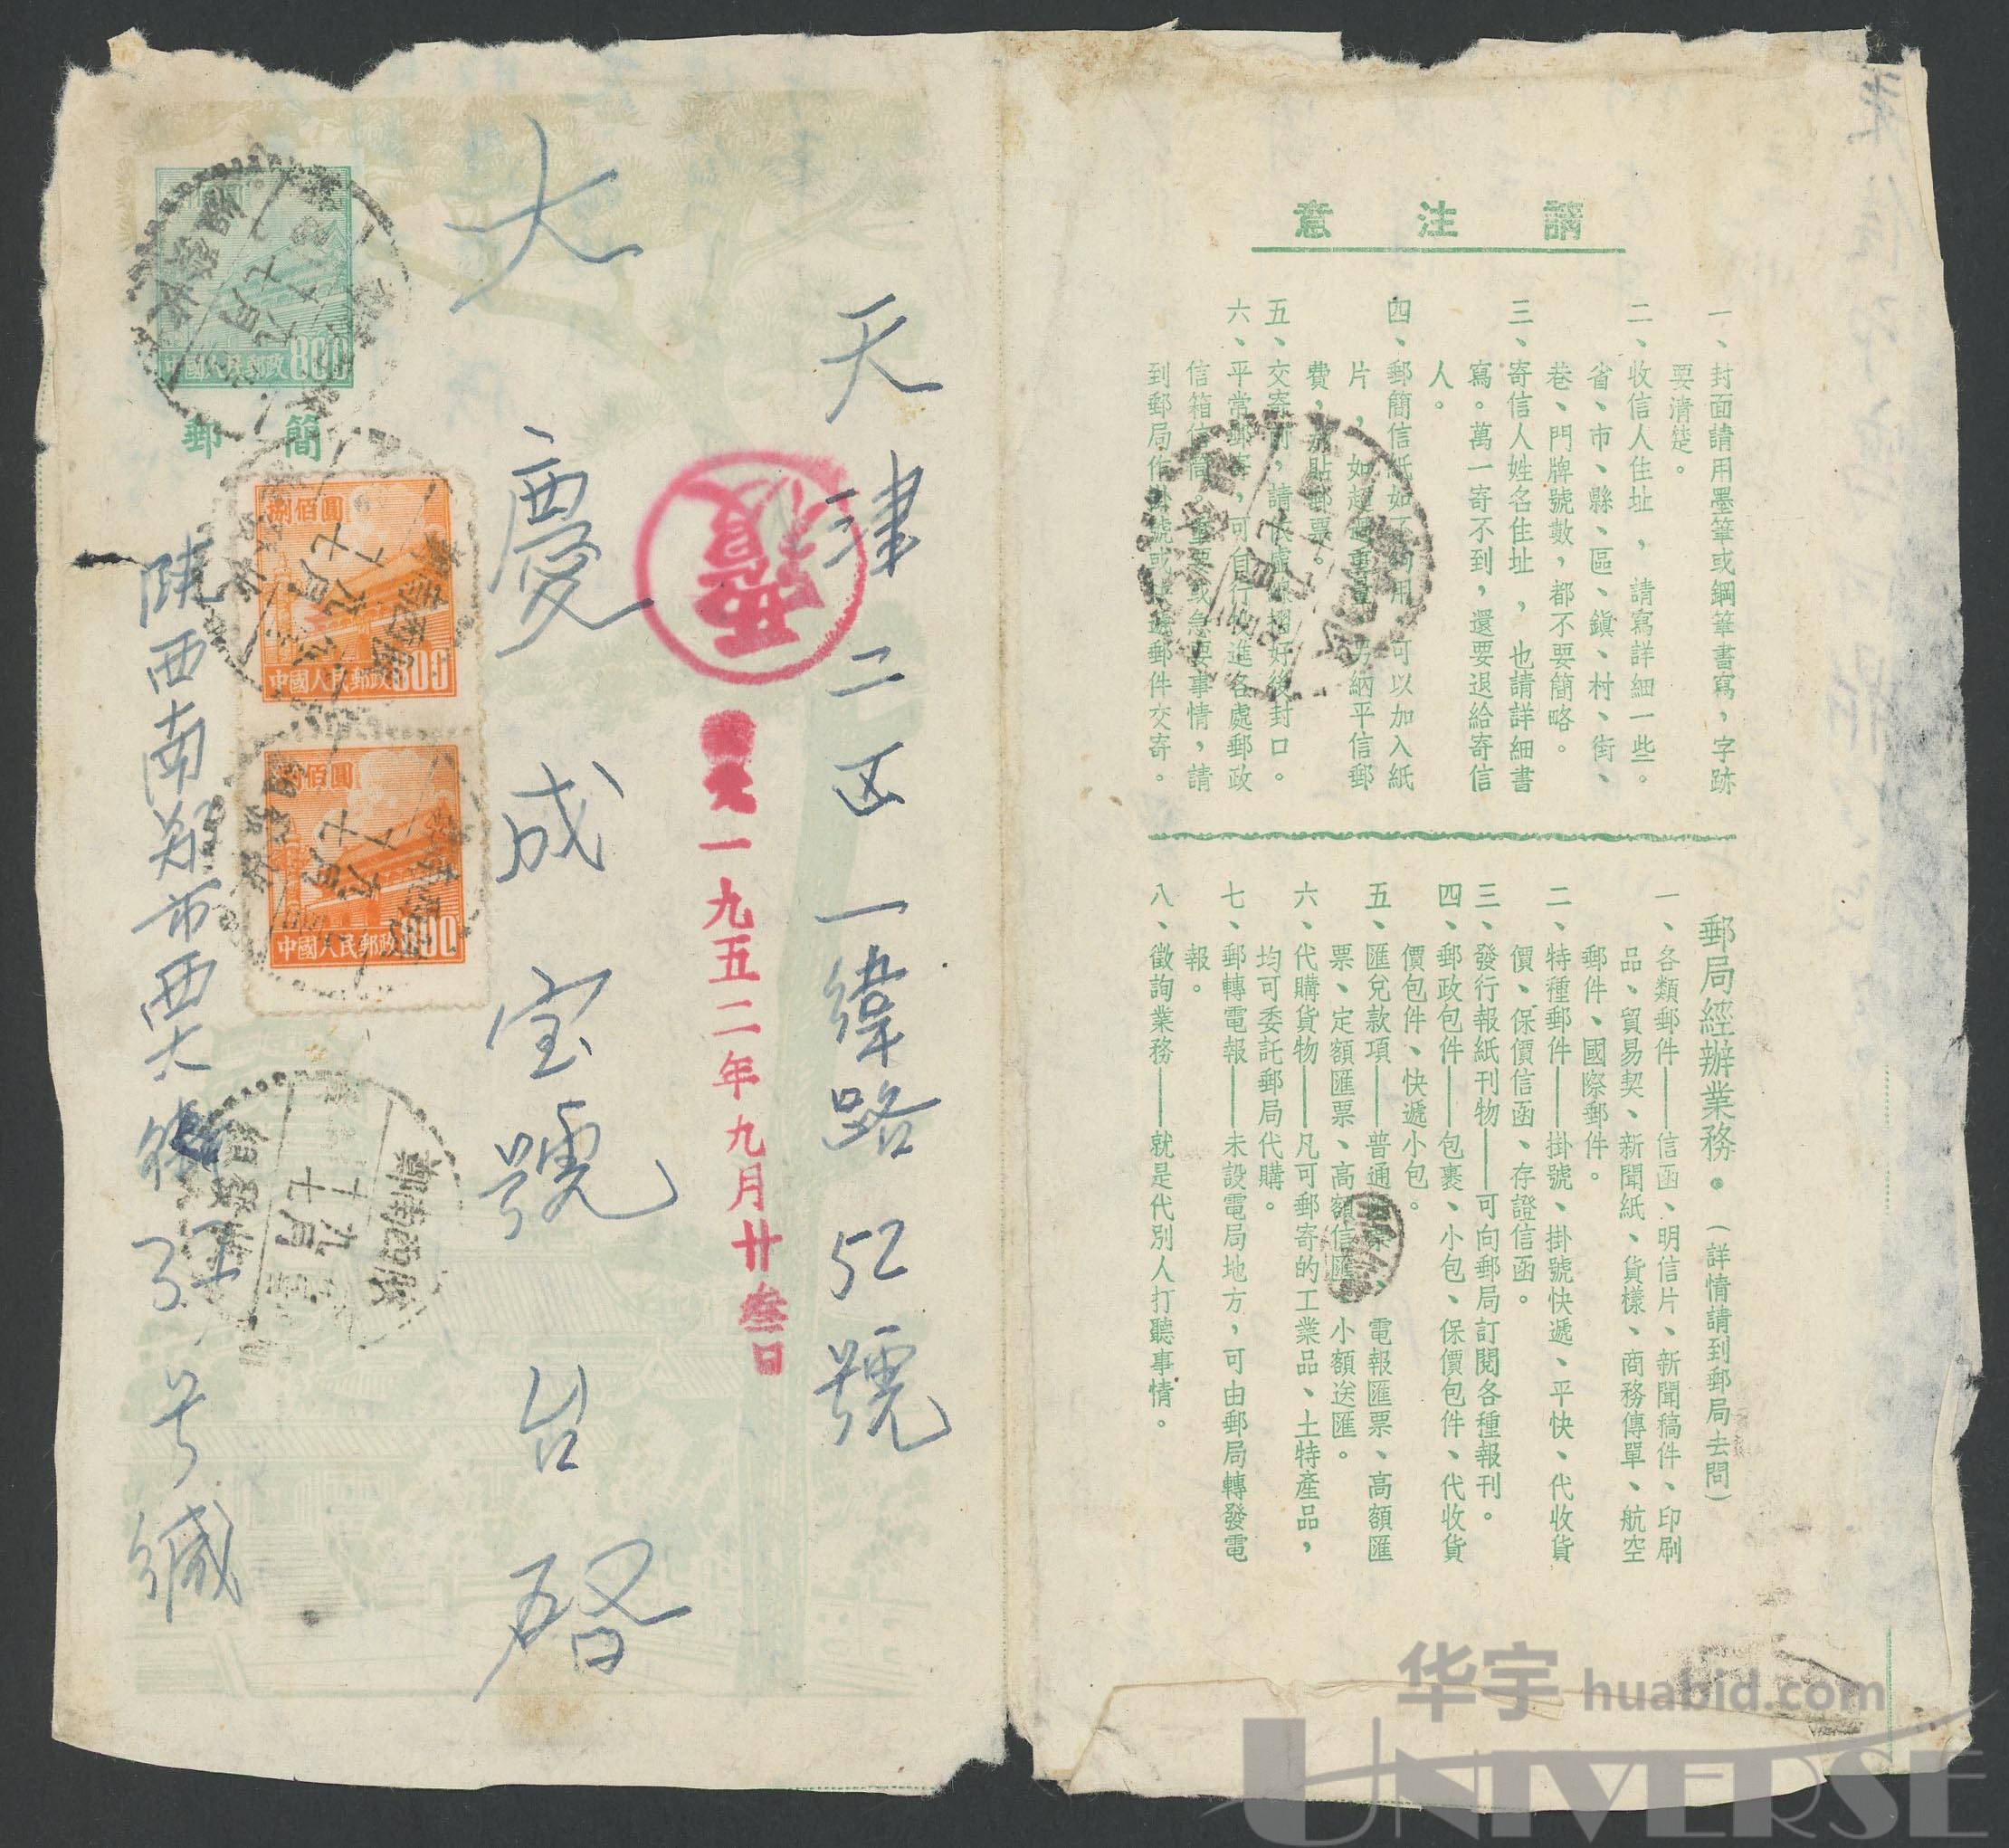 天津二区一緯路52號
大慶成宝號台啓
陕西南郑市西大街
号缄
捌佰圓
中國人民郵政800
郵簡
捌佰圓
中國人民郵政800
中國人民郵政800
一九五二年九月廿叁日
請注意
一、封面請用墨筆或鋼筆書寫，字跡
要清楚。
二、收信人住址，請寫詳細一些。
省、市、縣、區、鎮、村、街、
巷、門牌號數，都不要簡略。
三、寄信人姓名住址，也請詳細書
寫。萬一寄不到，還要退給寄信
人。
四、郵簡信紙如不夠用，可以加入紙
片，如超過重量，另納平信郵
費，加貼郵票。
五、交寄前，請依虛線摺好後封口。
六、平常郵簡，可自行投進各處郵政
信箱信筒。重要或急要事情，請
到郵局作掛號或快遞郵件交寄。
郵局經辦業務。（詳情請到郵局去問）
一、各類郵件——信函、明信片、新聞稿件、印刷
品、貿易契、新聞紙、貨樣、商務傳單、航空
郵件、國際郵件。
二、特種郵件——掛號、掛號快遞、平快、代收貨
價、保價信函、存證信函。
三、發行報紙刊物——可向郵局訂閱各種報刊。
四、郵政包件——包裹、小包、保價包件、代收貨
價包件、快遞小包。
五、匯兌款項——普通匯票、電報匯票、高額匯
票、定額匯票、高額信匯、小額送匯。
六、代購貨物——凡可郵寄的工業品、土特產品，
均可委託郵局代購。
七、郵轉電報——未設電局地方，可由郵局轉發電
報。
八、徵詢業務——就是代別人打聽事情。
华宇 huabid.com
UNIVERSE